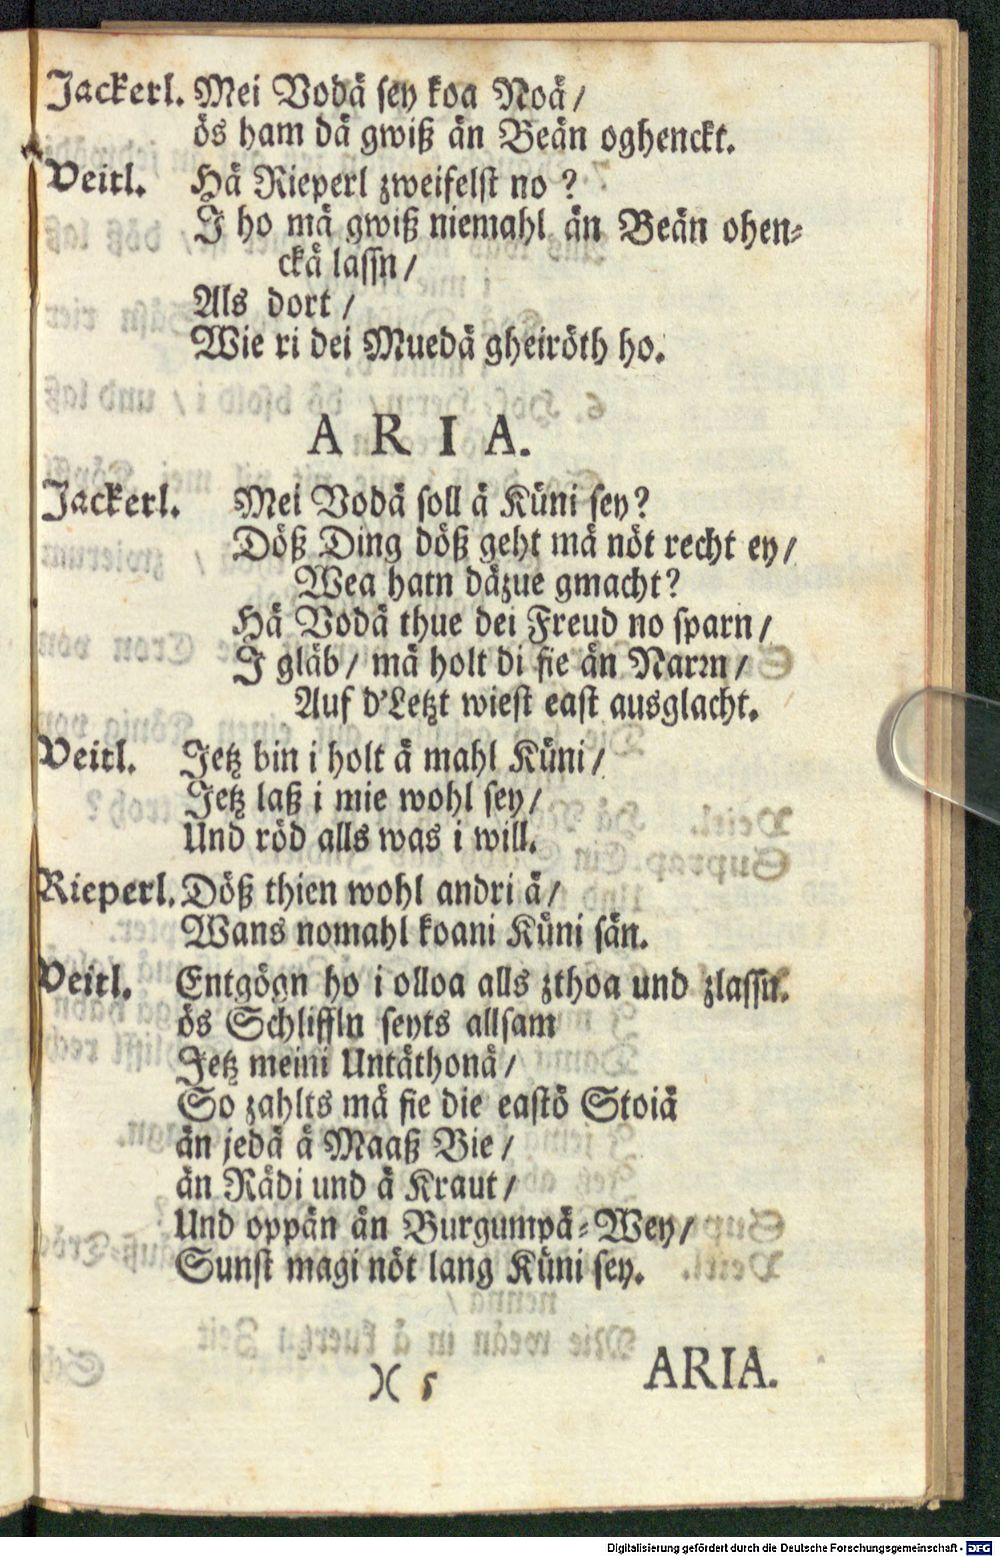 Jackerl. Mei Vodä sey koa Noä/
ös ham dä gwiß än Beän oghenckt.
Veitl. Hä Rieperl zweifelst no?
I ho mä gwiß niemahl än Beän ohen-
ckä lassn/
Als dort/
Wie ri dei Muedä gheiröth ho.
ARIA.
Jackerl. Mei Vodä soll ä Küni sey?
Döß Ding döß geht mä nöt recht ey/
Wea hatn däzue gmacht?
Hä Vodä thue dei Freud no sparn/
I gläb/ mä holt di fie än Narrn/
Auf d'Letzt wiest east ausglacht.
Veitl. Jetz bin i holt ä mahl Küni/
Jetz laß i mie wohl sey/
Und röd alls was i will.
Rieperl. Döß thien wohl andri ä/
Wans nomahl koani Küni sän.
Veitl. Entgögn ho i olloa alls zthoa und zlassn.
ös Schliffln seyts allsam
Jetz meini Untäthonä/
So zahlts mä fie die eastö Stoiä
än jedä ä Maaß Bie/
än Rädi und ä Kraut/
Und oppän än Burgumpä-Wey/
Sunst magi nöt lang Küni sey.
)( 5 ARIA.
Digitalisierung gefördert durch die Deutsche Forschungsgemeinschaft - DFG